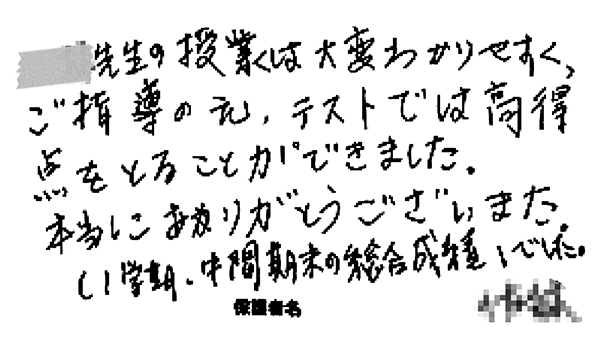 先生の授業は大変わかりやすく、
ご指導の元、テストでは高得
点をとることができました。
本当にありがとうございました。
(1学期、中間期末の総合成績1でした。
保護者名